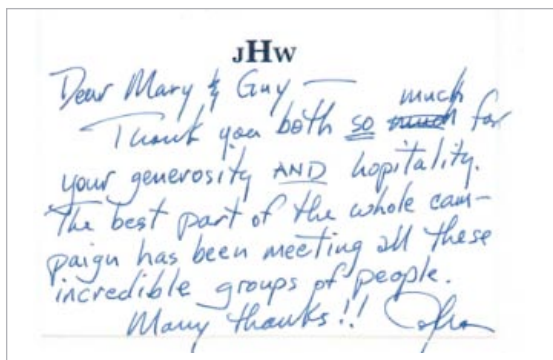 JHW
Dear Mary & Guy —
much
Thank you both so much for
your generosity AND hopitality.
The best part of the whole cam-
paign has been meeting all these
incredible groups of people.
Many thanks!!